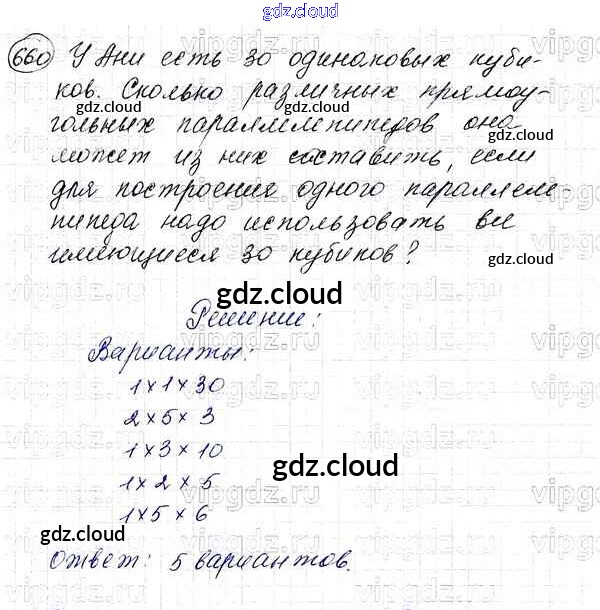 gdz.cloud
660 У Ани есть 30 одинаковых куби-
ков. Сколько различных прямоу-
gdz.cloud gdz.cloud
гольных параллелепипедов она
gdz.cloud
может из них составить, если
для построения одного параллеле-
пипеда надо использовать все
имеющиеся 30 кубиков?
gdz.cloud
gdz.cloud
Решение:
Варианты:
1×1×30
2×5×3
1×3×10
gdz.cloud
1×2×5
1×5×6
gdz.cloud
gdz.cloud
Ответ: 5 вариантов.